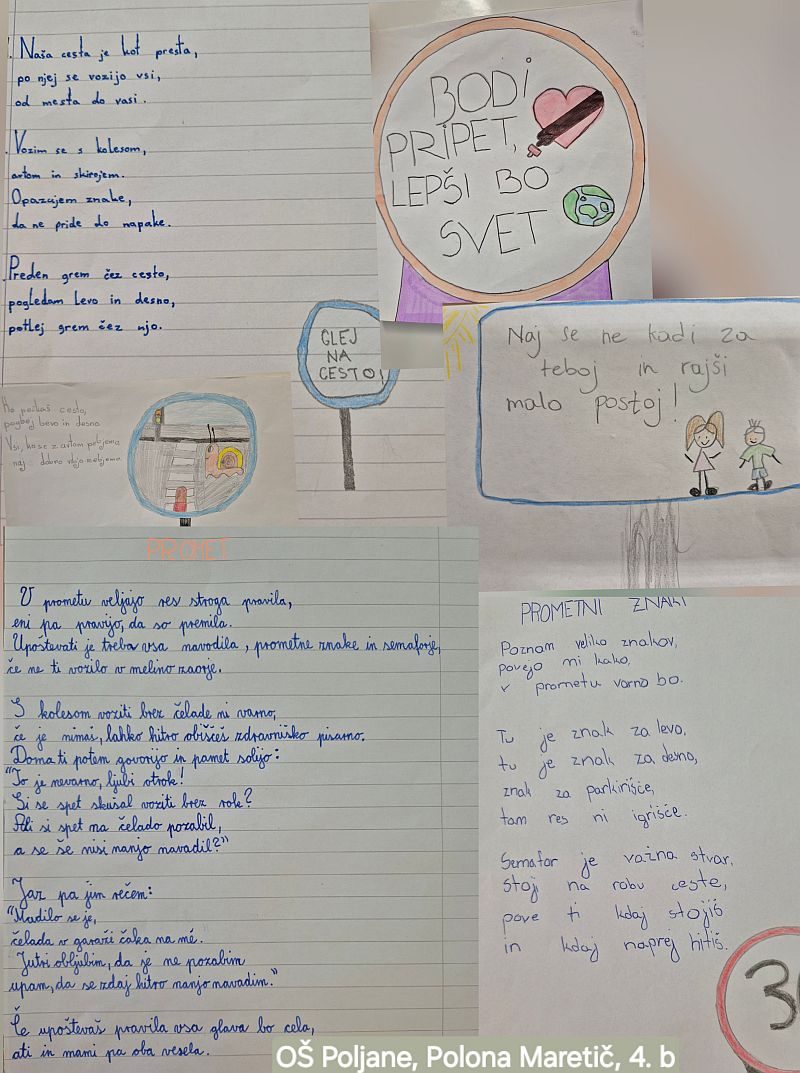 Naša cesta je kot presta,
po njej se vozijo vsi,
od mesta do vasi.
Vozim se s kolesom,
avtom in skirojem.
Opazujem znake,
da ne pride do napake.
Preden grem čez cesto,
pogledam levo in desno,
potlej grem čez njo.
BODI
PRIPET,
LEPŠI BO
SVET
GLEJ
NA
CESTO!
Naj se ne kadi za
teboj in rajši
malo postoj!
cesto,
levo in desno
Vsi,
PROMET
V prometu veljajo res stroga pravila,
eni pa pravijo, da so premila.
Upoštevati je treba vsa navodila, prometne znake in semaforje,
če ne ti vozilo v melino zaorje.
S kolesom voziti brez čelade ni varno,
če je nimaš, lahko hitro obiščeš zdravniško pisarno.
Doma ti potem govorijo in pamet solijo:
"To je nevarno, ljubi otrok!
Si se spet skušal voziti brez rok?
Ali si spet na čelado pozabil,
a se še nisi nanjo navadil?"
Jaz pa jim rečem:
"Nadilo se je,
čelada v garaži čaka na mé.
Jutri obljubim, da je ne pozabim
upam, da se zdaj hitro nanjo navadim."
Če upoštevaš pravila vsa glava bo cela,
ati in mami pa oba vesela.
PROMETNI ZNAKI
Poznam veliko znakov,
povejo mi kako,
v prometu varno bo.
Tu je znak za levo,
tu je znak za desno,
znak za parkirišče,
tam res ni igrišče.
Semafor je važna stvar,
stoji na robu ceste,
pove ti kdaj stojiš
in kdaj naprej hitiš.
OŠ Poljane, Polona Maretič, 4. b